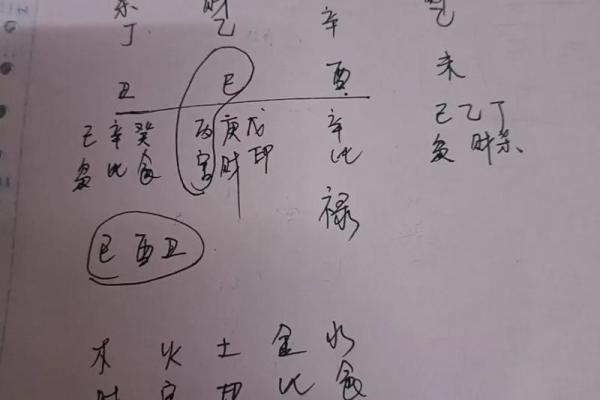 杀 财 辛
丁 乙
丑 巳 酉 未
己辛癸 丙庚戊 辛 己乙丁
比食 官财印 比 财杀
禄
巳酉丑
木 火 土 金 水
财 官 印 比 食